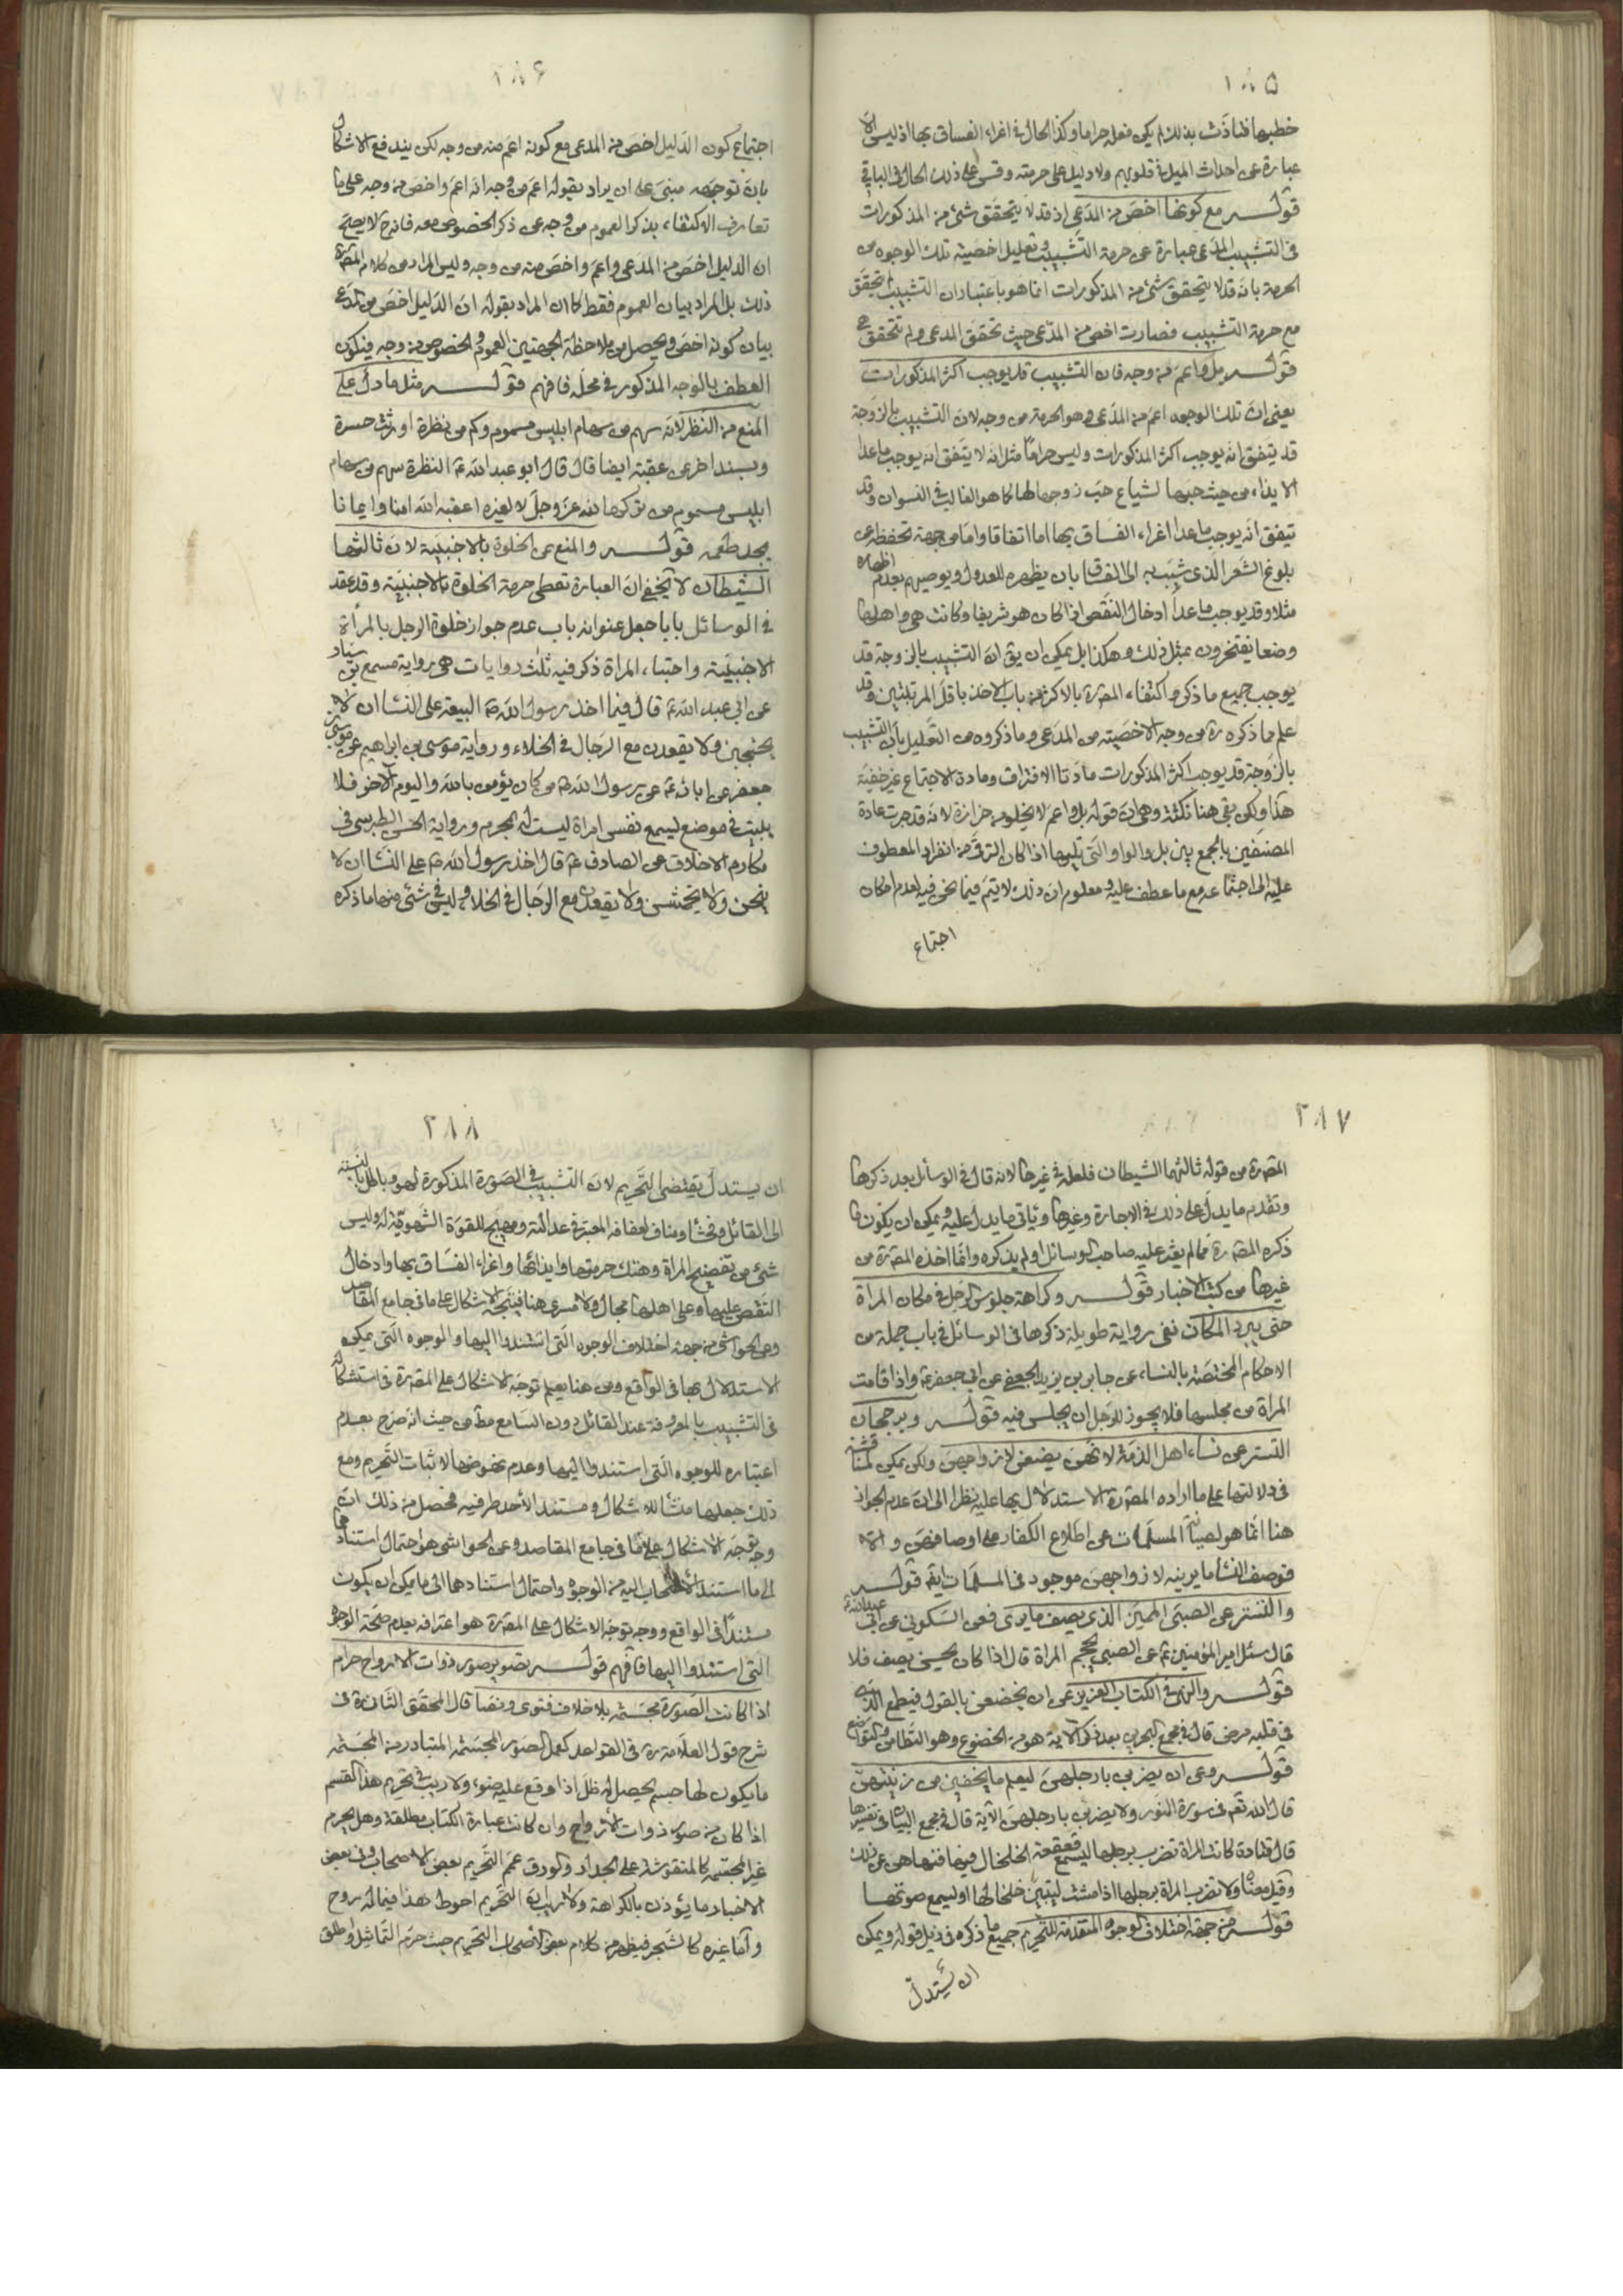 ١٨٥
خطبها فتاذت بذلك لم يكن فعله حراما وكذا الحال في اغراء الفساق بها اذ ليس الا
عبارة عن احداث الميل في قلوبهم ولا دليل على حرمته وقس على ذلك الحال في الباقي
قولـــه مع كونها اخص من المدعى اذ قد لا يتحقق شئ من المذكورات
في التشبيب المدعى عبارة عن حرمة التشبيب وتعليل اخصية تلك الوجوه من
الحرمة بانه قد لا يتحقق شئ من المذكورات انما هو باعتبار ان التشبيب يتحقق
مع حرمة التشبيب فصارت اخص من المدعى حيث تحقق المدعى ولم تتحقق هي
قولـــه بل واعم من وجه فان التشبيب قد يوجب اكثر المذكورات
يعني ان تلك الوجوه اعم من المدعى وهو الحرمة من وجه لان التشبيب بالزوجة
قد يتفق انه يوجب اكثر المذكورات وليس حراما مثل انه لا يتفق انه يوجب ما عدا
الايذاء من حيث حبها لشياع حب زوجها لها كما هو الغالب في النسوان وقد
يتفق انه يوجب ما عدا اغراء الفساق بها اما اتفاقا واما من جهة تحفظه عن
بلوغ الشعر الذي شبب به الى الفساق بان يظهره للعدول ويوصيهم بعدم اظهاره
مثلا وقد يوجب ما عدا ادخال النقص اذا كان هو شريفا وكانت هي واهلها
وضعا يفتخرون بمثل ذلك وهكذا بل يمكن ان يق ان التشبيب بالزوجة قد
يوجب جميع ما ذكر واكتفاء المصره بالاكثر من باب الاخذ باقل المرتبتين وقد
علم مما ذكره ره من وجه الاخصية من المدعى وما ذكروه من التعليل بان التشبيب
بالزوجة قد يوجب اكثر المذكورات مادتا الافتراق ومادة الاجتماع غير خفية
هذا ولكن بقي هنا نكتة وهي ان قوله بل واعم لا يخلو من حزازة لانه قد جرت عادة
المصنفين بالجمع بين بل والواو التي تليها اذا كان الترقي من انفراد المعطوف
عليه الى اجتماعه مع ما عطف عليه ومعلوم ان ذلك لا يتم فيما نحن فيه لعدم امكان
اجتماع
١٨٦
اجتماع كون الدليل اخص من المدعى مع كونه اعم منه من وجه لكن يندفع الاشكال
بان توجهه مبني على ان يراد بقوله اعم من وجه انه اعم واخص من وجه على ما
تعارف الاكتفاء بذكر العموم من وجه عن ذكر الخصوص معه فانه ح لا يصح
ان الدليل اخص من المدعى واعم واخص منه من وجه وليس المراد من كلام المصره
ذلك بل المراد بيان العموم فقط كما ان المراد بقوله ان الدليل اخص من المدعى
بيان كونه اخص ويحصل من ملاحظة الجهتين العموم والخصوص من وجه فيكون
العطف بالوجه المذكور في محله فافهم قولـــه مثل ما دل على
المنع من النظر لانه سهم من سهام ابليس مسموم وكم من نظرة اورثت حسرة
وبسند اخر عن عقبة ايضا قال قال ابو عبد الله ع النظرة سهم من سهام
ابليس مسموم من تركها لله عز وجل لا لغيره اعقبه الله امنا وايمانا
يجد طعمه قولـــه والمنع عن الخلوة بالاجنبية لان ثالثهما
الشيطان لا يخفى ان العبارة تعطي حرمة الخلوة بالاجنبية وقد عقد
في الوسائل بابا جعل عنوانه باب عدم جواز خلوة الرجل بالمرأة
الاجنبية واحتباء المراة ذكر فيه ثلث روايات هي رواية مسمع بن سيار
عن ابي عبد الله ع قال فيما اخذ رسول الله ص البيعة على النساء ان لا
يحتبين ولا يقعدن مع الرجال في الخلاء ورواية موسى بن ابراهيم عن موسى بن
جعفر عن ابائه ع عن رسول الله ص من كان يؤمن بالله واليوم الاخر فلا
يلبث في موضع ليسمع نفس امراة ليست له بمحرم ورواية الحسن الطبرسي في
مكارم الاخلاق عن الصادق ع قال اخذ رسول الله ص على النساء ان لا
ينحن ولا يخمشن ولا يقعدن مع الرجال في الخلاء وليس في شئ منها ما ذكره
٢٨٧
المصره من قوله ثالثهما الشيطان فلعله في غيرها لانه قال في الوسائل بعد ذكرها
وتقدم ما يدل على ذلك في الاجارة وغيرها وياتي ما يدل عليه ويمكن ان يكون ما
ذكره المصره مما لم يعثر عليه صاحب الوسائل او لم يذكره وانما اخذه المصره من
غيرها من كتب الاخبار قولـــه وكراهة جلوس الرجل في مكان المراة
حتى يبرد المكان ففي رواية طويلة ذكرها في الوسائل في باب جملة من
الاحكام المختصة بالنساء عن جابر بن يزيد الجعفي عن ابي جعفر ع واذا قامت
المراة من مجلسها فلا يجوز للرجل ان يجلس فيه قولـــه وبرجحان
التستر عن نساء اهل الذمة لانهن يصفن لازواجهن ولكن يمكن المناقشة
في دلالتها على ما اراده المصره الاستدلال بها عليه نظرا الى ان عدم الجواز
هنا انما هو لصيانة المسلمات عن اطلاع الكفار على اوصافهن والا
فوصف النساء ما يرينه لازواجهن موجود في المسلمات ايضا قولـــه
والتستر عن الصبي المميز الذي يصف ما يرى فعن السكوني عن ابي عبد الله ع
قال سئل امير المؤمنين ع عن الصبي يحجم المراة قال اذا كان يحسن يصف فلا
قولـــه والنهي في الكتاب العزيز عن ان يخضعن بالقول فيطمع الذي
في قلبه مرض قال في مجمع البحرين بعد ذكر الاية هو من الخضوع وهو التطامن والتواضع
قولـــه وعن ان يضربن بارجلهن ليعلم ما يخفين من زينتهن
قال الله تعم في سورة النور ولا يضربن بارجلهن الآية قال في مجمع البيان في تفسيرها
قال قتادة كانت المراة تضرب برجلها ليسمع قعقعة الخلخال فيها فنهاهن عن ذلك
وقيل معناه ولا تضرب المراة برجلها اذا مشت ليتبين خلخالها او ليسمع صوتها
قولـــه من جهة اختلاف الوجوه المتقدمة للتحريم جميع ما ذكره في ذيل قوله ويمكن
ان يستدل
٢٨٨
ان يستدل يقتضي التحريم لان التشبيب في الصورة المذكورة لهو وباطل بالنسبة
الى القائل وفحشا ومناف لعفافه المعتبرة في عدالته ومهيج للقوة الشهوية له وليس
شئ من تفضيح المراة وهتك حرمتها وايذائها واغراء الفساق بها وادخال
النقص عليها وعلى اهلها مجال ولا مسرى هنا فيتجه الاشكال على ما في جامع المقاصد
وعن الحواشي من جهة اختلاف الوجوه التي استندوا اليها والوجوه التي يمكن
الاستدلال بها في الواقع ومن هنا يعلم توجه الاشكال على المصره في استشكاله
في التشبيب بالمعروفة عند القائل دون السامع مط من حيث انه صرح بعدم
اعتباره للوجوه التي استندوا اليها وعدم نهوضها لاثبات التحريم ومع
ذلك جعلها منشأ للاشكال ومستندا لاحد طرفيه فحصل من ذلك ان
وجه توجه الاشكال على ما في جامع المقاصد وعن الحواشي هو احتمال استنادهما
الى ما استند الاصحاب اليه من الوجوه واحتمال استنادهما الى ما يمكن ان يكون
مستندا في الواقع ووجه توجه الاشكال على المصره هو اعترافه بعدم صحة الوجوه
التي استندوا اليها فافهم قولـــه تصوير صور ذوات الارواح حرام
اذا كانت الصورة مجسمة بلا خلاف فتوى ونصا قال المحقق الثاني ره في
شرح قول العلامة ره في القواعد كعمل الصور المجسمة المتبادر من المجسمة
ما يكون لها جسم يحصل له ظل اذا وقع عليه ضوء ولا ريب في تحريم هذا القسم
اذا كان من صور ذوات الارواح وان كانت عبارة الكتاب مطلقة وهل يحرم
غير المجسمة كالمنقوشة على الجدار والورق عمم التحريم بعض الاصحاب وفي بعض
الاخبار ما يؤذن بالكراهة ولا ريب ان التحريم احوط هذا فيما له روح
واما غيره كالشجر فيظهر من كلام بعض الاصحاب التحريم حيث حرم التماثيل واطلق